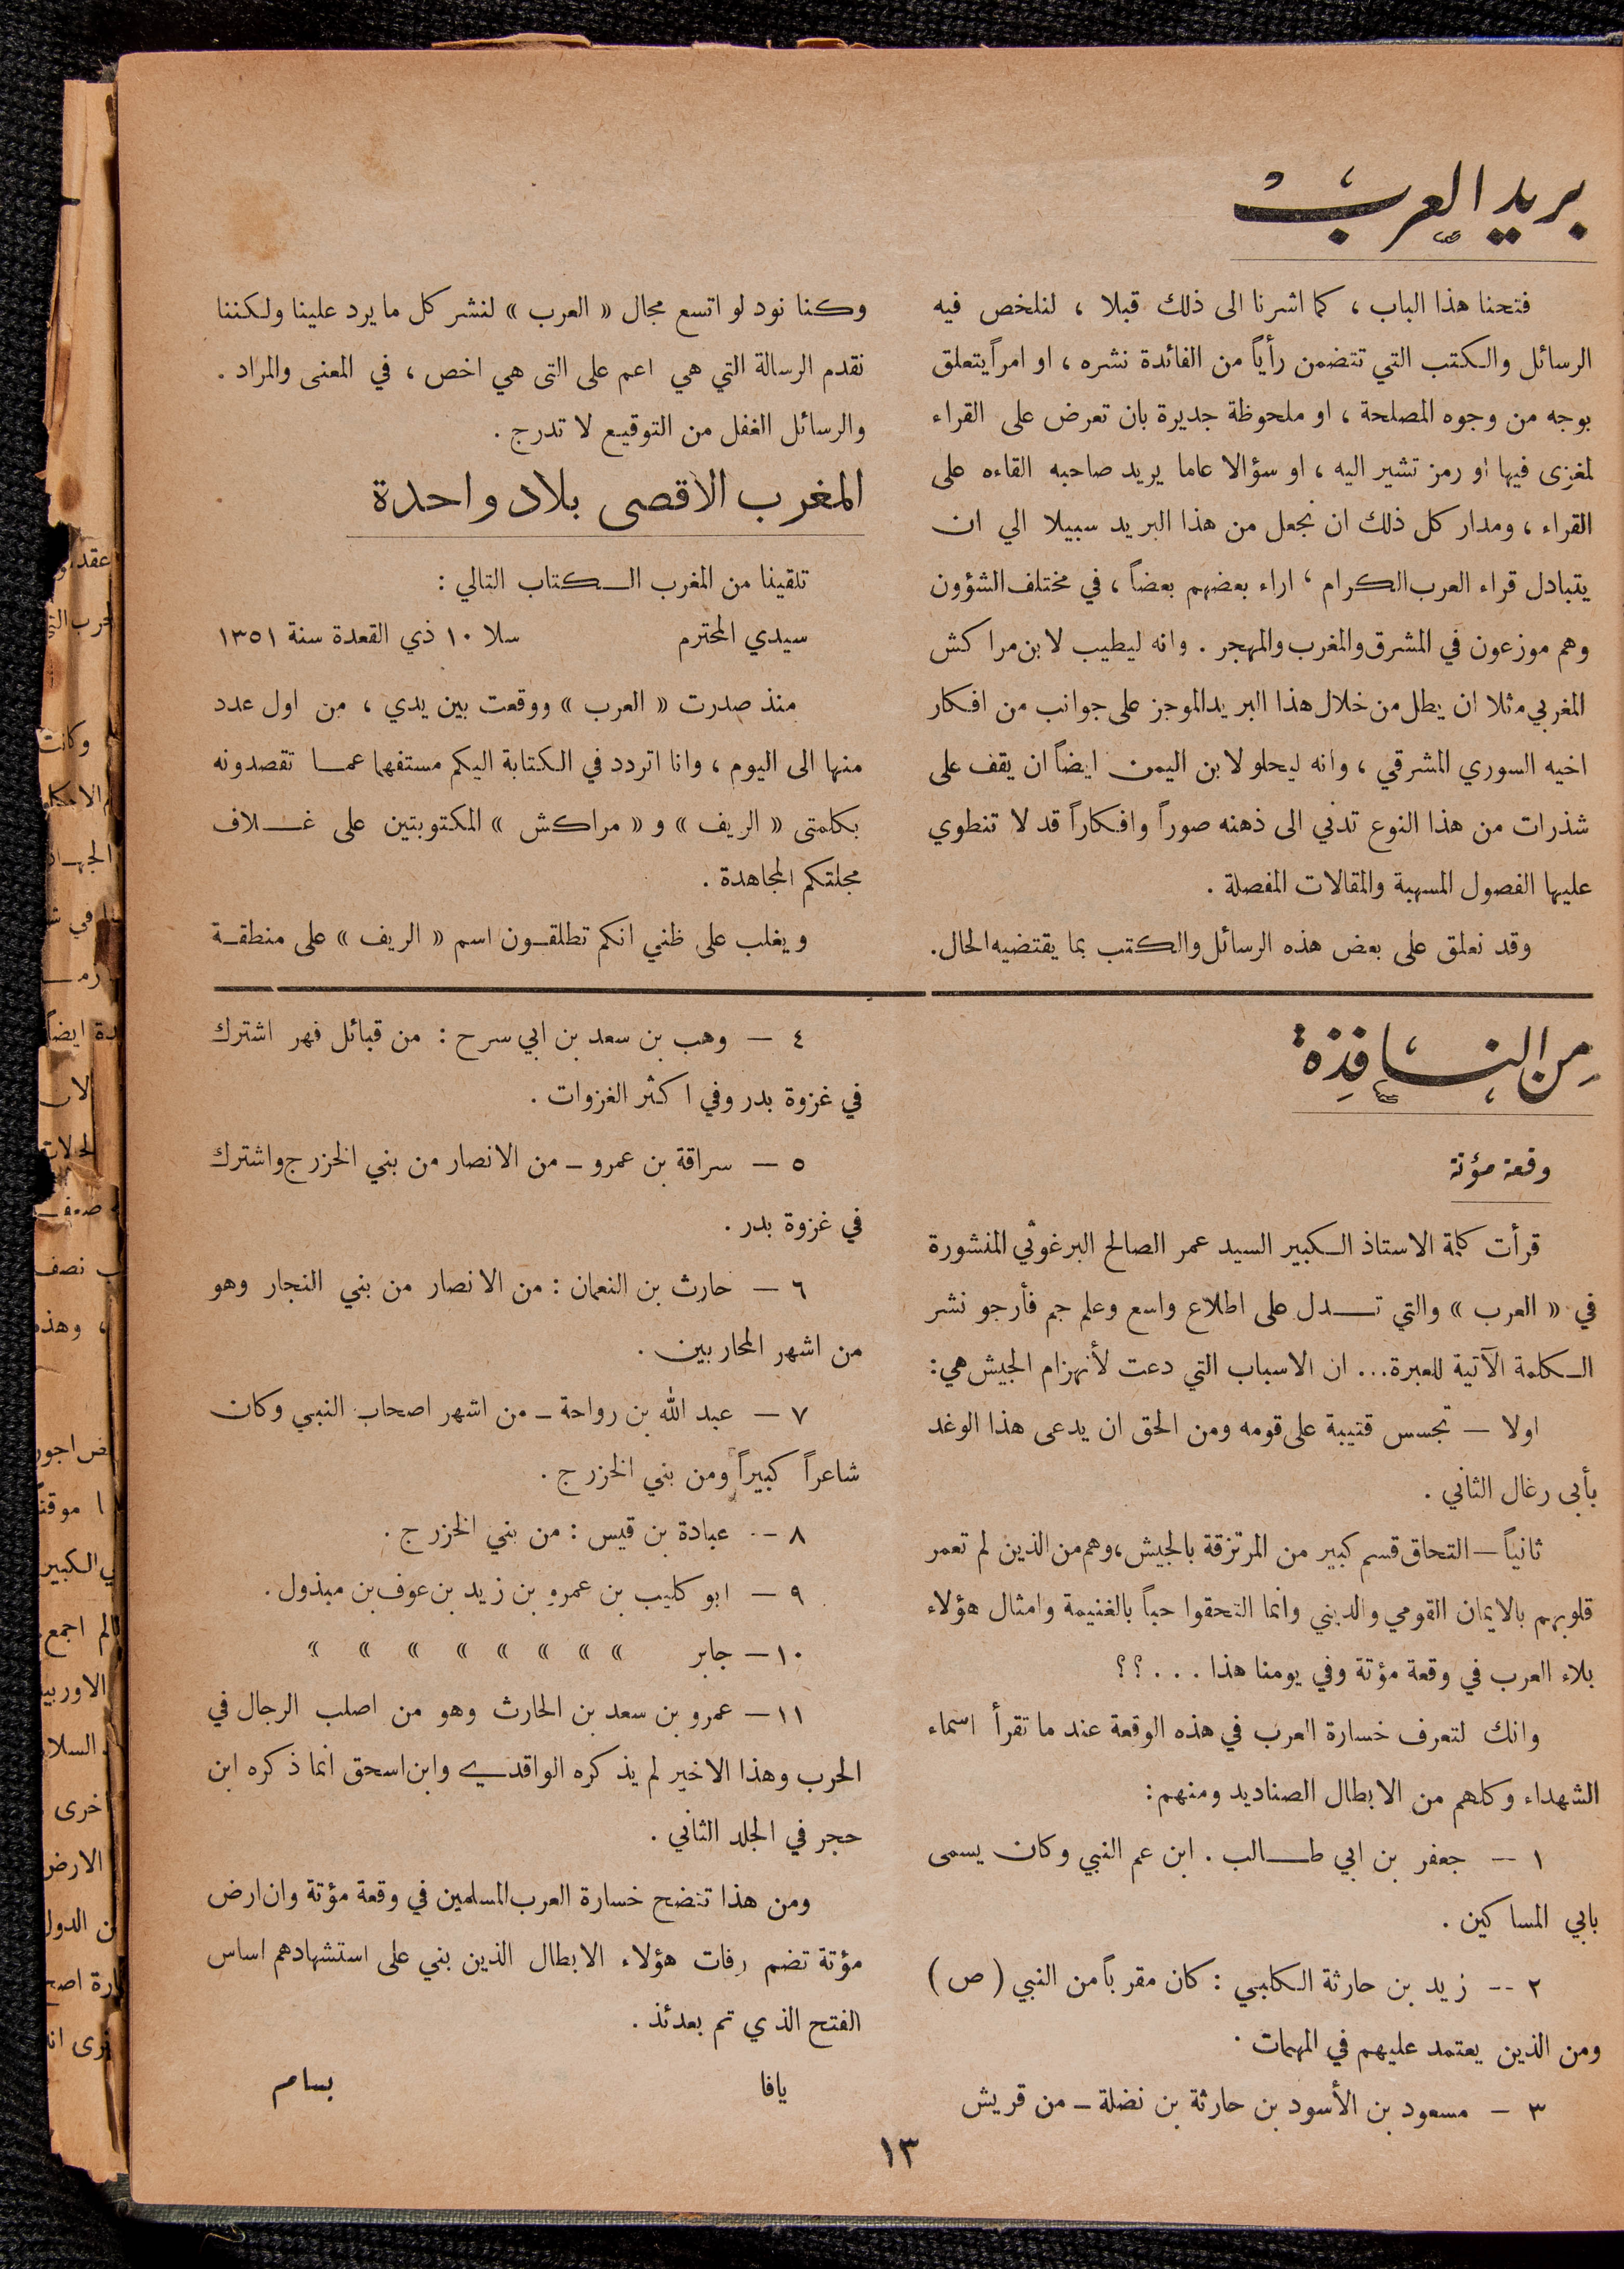 بريد العرب
فتحنا هذا الباب ، كما اشرنا الى ذلك قبلا ، لنلخص فيه
الرسائل والكتب التي تتضمن رأياً من الفائدة نشره ، او امراً يتعلق
بوجه من وجوه المصلحة ، او ملحوظة جديرة بان تعرض على القراء
لمغزى فيها او رمز تشير اليه ، او سؤالا عاما يريد صاحبه القاءه على
القراء ، ومدار كل ذلك ان نجعل من هذا البريد سبيلا الي ان
يتبادل قراء العرب الكرام ، اراء بعضهم بعضاً ، في مختلف الشؤون
وهم موزعون في المشرق والمغرب والمهجر . وانه ليطيب لابن مراكش
المغربي مثلا ان يطل من خلال هذا البريد الموجز على جوانب من افكار
اخيه السوري المشرقي ، وانه ليحلو لابن اليمن ايضاً ان يقف على
شذرات من هذا النوع تدني الى ذهنه صوراً وافكاراً قد لا تنطوي
عليها الفصول المسهبة والمقالات المفصلة .
وقد نعلق على بعض هذه الرسائل والكتب بما يقتضيه الحال.
وكنا نود لو اتسع مجال « العرب » لنشر كل ما يرد علينا ولكننا
نقدم الرسالة التي هي اعم على التى هي اخص ، في المعنى والمراد .
والرسائل الغفل من التوقيع لا تدرج .
المغرب الاقصى بلاد واحدة
تلقينا من المغرب الكتاب التالي :
سيدي المحترم سلا ١٠ ذي القعدة سنة ١٣٥١
منذ صدرت « العرب » ووقعت بين يدي ، من اول عدد
منها الى اليوم ، وانا اتردد في الكتابة اليكم مستفهما عما تقصدونه
بكلمتى « الريف » و « مراكش » المكتوبتين على غلاف
مجلتكم المجاهدة .
ويغلب على ظني انكم تطلقون اسم « الريف » على منطقة
مِن النافِذة
وقعة مؤتة
قرأت كلمة الاستاذ الكبير السيد عمر الصالح البرغوثي المنشورة
في « العرب » والتي تدل على اطلاع واسع وعلم جم فأرجو نشر
الكلمة الآتية للعبرة... ان الاسباب التي دعت لأنهزام الجيش هي:
اولا — تجسس قتيبة على قومه ومن الحق ان يدعى هذا الوغد
بأبى رغال الثاني .
ثانياً — التحاق قسم كبير من المرتزقة بالجيش، وهم من الذين لم تعمر
قلوبهم بالايمان القومي والديني وانما التحقوا حباً بالغنيمة وامثال هؤلاء
بلاء العرب في وقعة مؤتة وفي يومنا هذا . . . ؟؟
وانك لتعرف خسارة العرب في هذه الوقعة عند ما تقرأ اسماء
الشهداء وكلهم من الابطال الصناديد ومنهم:
١ -- جعفر بن ابي طالب . ابن عم النبي وكان يسمى
بابي المساكين .
٢ -- زيد بن حارثة الكلبي : كان مقرباً من النبي ( ص )
ومن الذين يعتمد عليهم في المهمات .
٣ — مسعود بن الأسود بن حارثة بن نضلة — من قريش
٤ — وهب بن سعد بن ابي سرح : من قبائل فهر اشترك
في غزوة بدر وفي اكثر الغزوات .
٥ — سراقة بن عمرو — من الانصار من بني الخزرج واشترك
في غزوة بدر .
٦ — حارث بن النعمان : من الانصار من بني النجار وهو
من اشهر المحاربين .
٧ — عبد الله بن رواحة — من اشهر اصحاب النبي وكان
شاعراً كبيراً ومن بني الخزرج .
٨ — عبادة بن قيس : من بني الخزرج .
٩ — ابو كليب بن عمرو بن زيد بن عوف بن مبذول .
١٠ — جابر » » » » » » » »
١١ — عمرو بن سعد بن الحارث وهو من اصلب الرجال في
الحرب وهذا الاخير لم يذكره الواقدي وابن اسحق انما ذكره ابن
حجر في المجلد الثاني .
ومن هذا تتضح خسارة العرب المسلمين في وقعة مؤتة وان ارض
مؤتة تضم رفات هؤلاء الابطال الذين بني على استشهادهم اساس
الفتح الذي تم بعدئذ .
يافا بسام
١٣